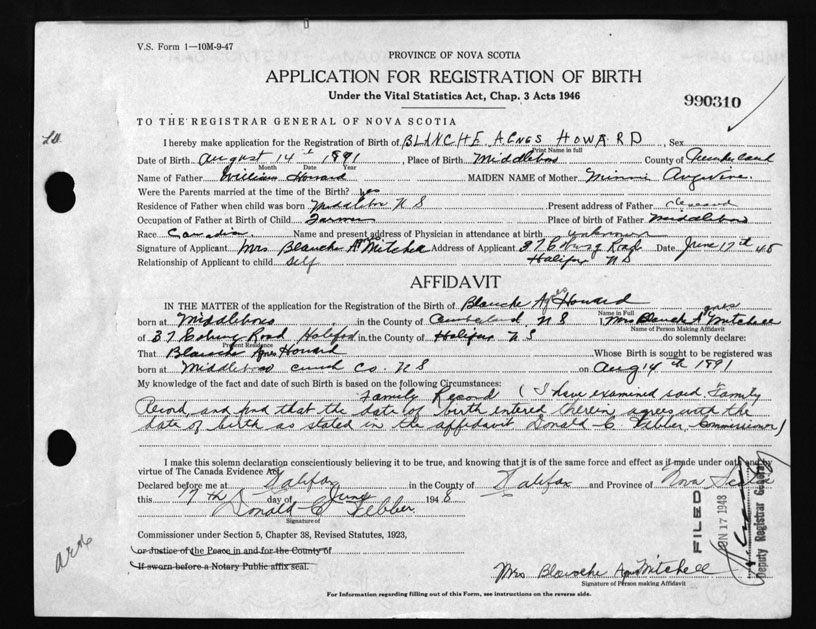 V.S. Form 1—10M-9-47
PROVINCE OF NOVA SCOTIA
APPLICATION FOR REGISTRATION OF BIRTH
Under the Vital Statistics Act, Chap. 3 Acts 1946
990310
TO THE REGISTRAR GENERAL OF NOVA SCOTIA
I hereby make application for the Registration of Birth of BLANCHE AGNES HOWARD, Sex
Print Name in full
Date of Birth August 14th 1891, Place of Birth Middleboro County of Cumberland
Month Date Year
Name of Father William Howard MAIDEN NAME of Mother Minnie
Were the Parents married at the time of the Birth? yes
Residence of Father when child was born Middleboro N S Present address of Father deceased
Occupation of Father at Birth of Child Farmer Place of birth of Father Middleboro
Race Canadian Name and present address of Physician in attendance at birth unknown
Signature of Applicant Mrs Blanche A Mitchell Address of Applicant 37 Coburg Road Date June 17th 48
Relationship of Applicant to child self Halifax N S
AFFIDAVIT
IN THE MATTER of the application for the Registration of the Birth of Blanche Agnes Howard
Name in Full
born at Middleboro in the County of Cumberland, N S I, Mrs Blanche Agnes Mitchell
Name of Person Making Affidavit
of 37 Coburg Road Halifax in the County of Halifax N S do solemnly declare:
Present Residence
That Blanche Agnes Howard Whose Birth is sought to be registered was
born at Middleboro Co. N S on Aug 14th 1891
My knowledge of the fact and date of such Birth is based on the following Circumstances:
Family Record (I have examined said Family
Record and find that the date of birth entered therein agrees with the
date of birth as stated in the affidavit Donald C Webber, Commissioner)
I make this solemn declaration conscientiously believing it to be true, and knowing that it is of the same force and effect as if made under oath and by
virtue of The Canada Evidence Act.
Declared before me at Halifax in the County of Halifax and Province of Nova Scotia
this 17th day of June 1948
Donald C Webber
Signature of
Commissioner under Section 5, Chapter 38, Revised Statutes, 1923,
or Justice of the Peace in and for the County of
If sworn before a Notary Public affix seal.
Mrs Blanche Agnes Mitchell
Signature of Person making Affidavit
For Information regarding filling out of this Form, see instructions on the reverse side.
FILED
JUN 17 1948
Deputy Registrar General